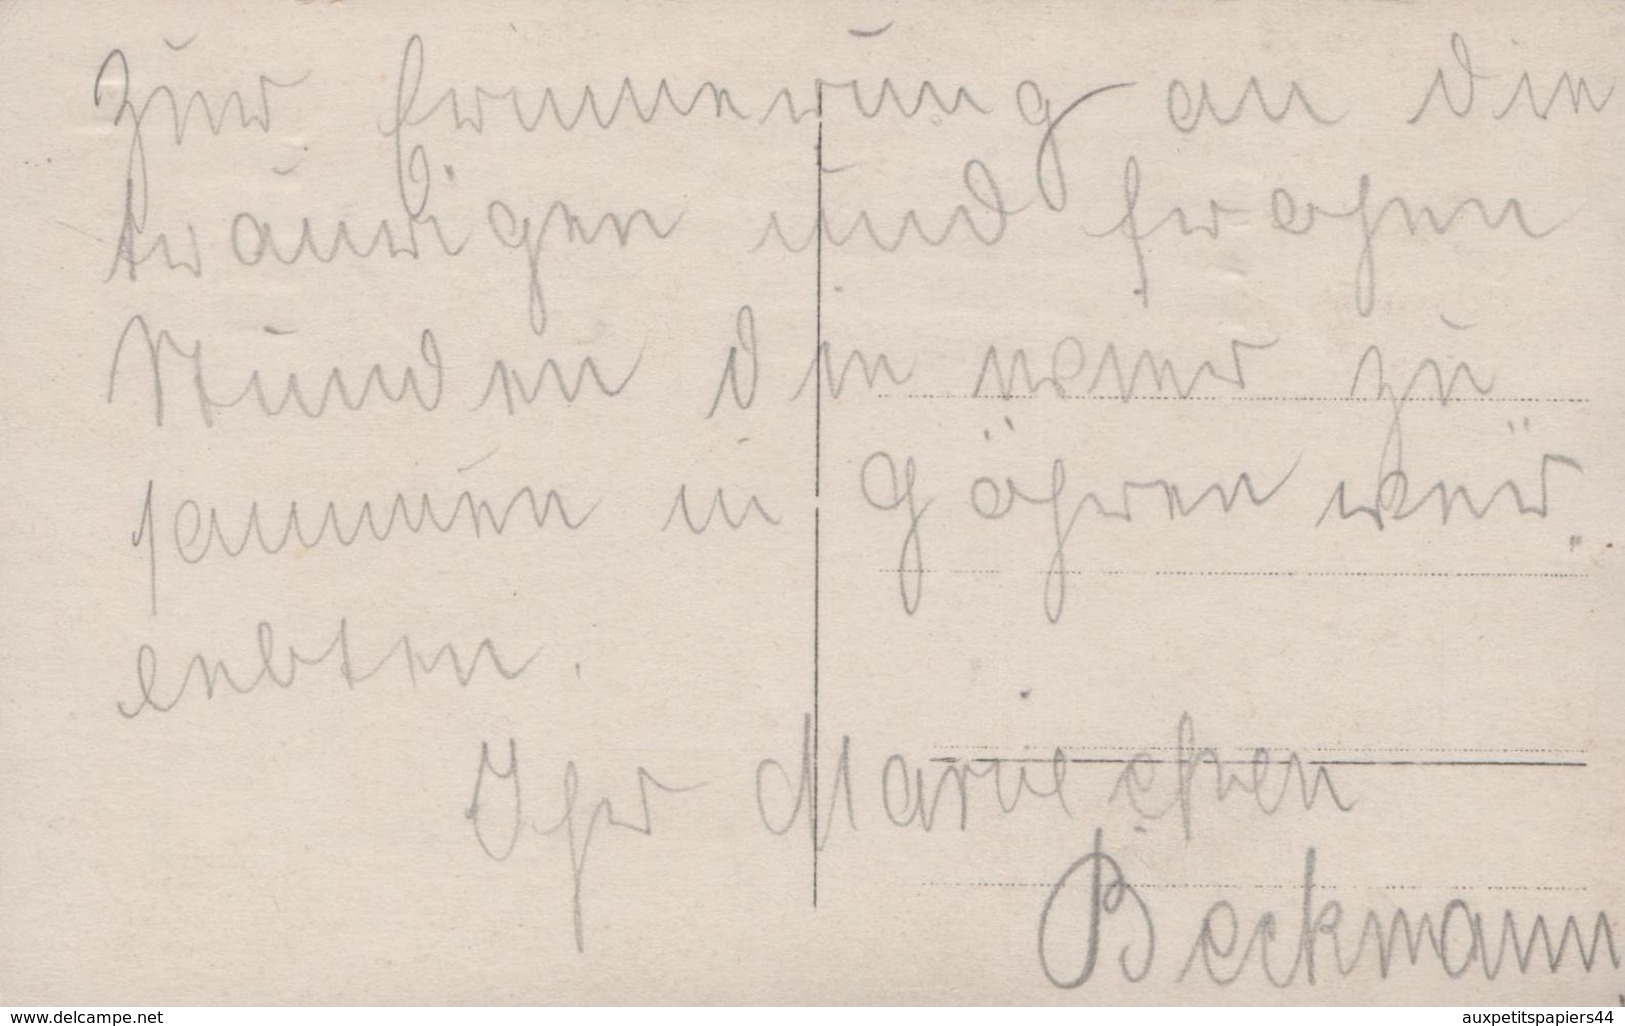 Zur Erinnerung an die
traurigen und frohen
Stunden die wier zu
sammen in Göhren ver
lebten.
Ihr Mariechen
Beckmann
www.delcampe.net
auxpetitspapiers44